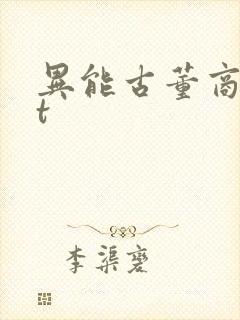 異能古董商
t
李渠蹇